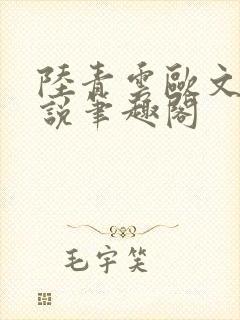 陸青雲歐文
說筆趣閣
毛宇笑